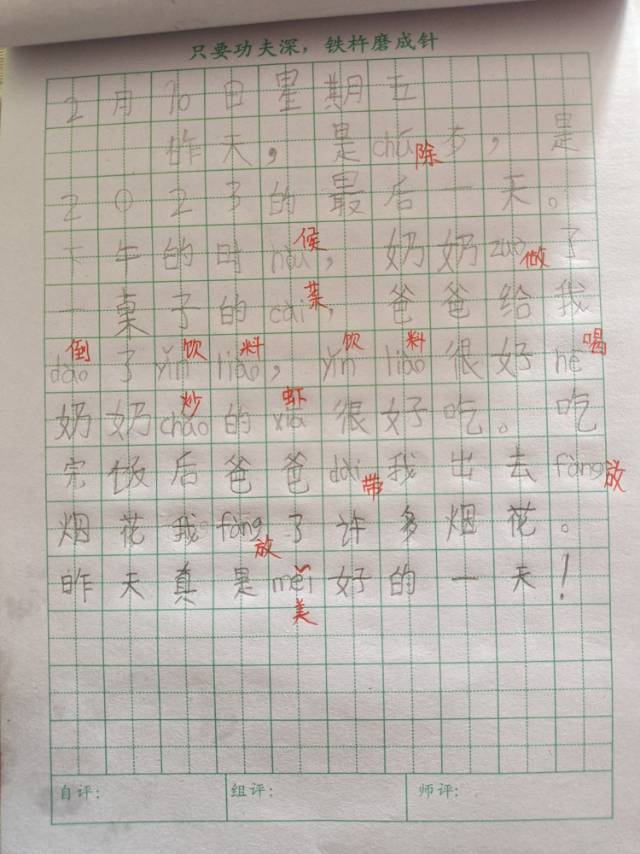 只要功夫深，铁杵磨成针
2月10日星期五
昨天，是chú除夕，是
2023的最后一天。
下午的时hou候，奶奶zuò做了
一桌子的cài菜，爸爸给我
dào倒了yǐn饮liào料，yǐn饮liào料很好hē喝
奶奶chǎo炒的xiā虾很好吃。吃
完饭后爸爸dài带我出去fàng放
烟花我fàng放了许多烟花。
昨天真是měi美好的一天！
自评： 组评： 师评：